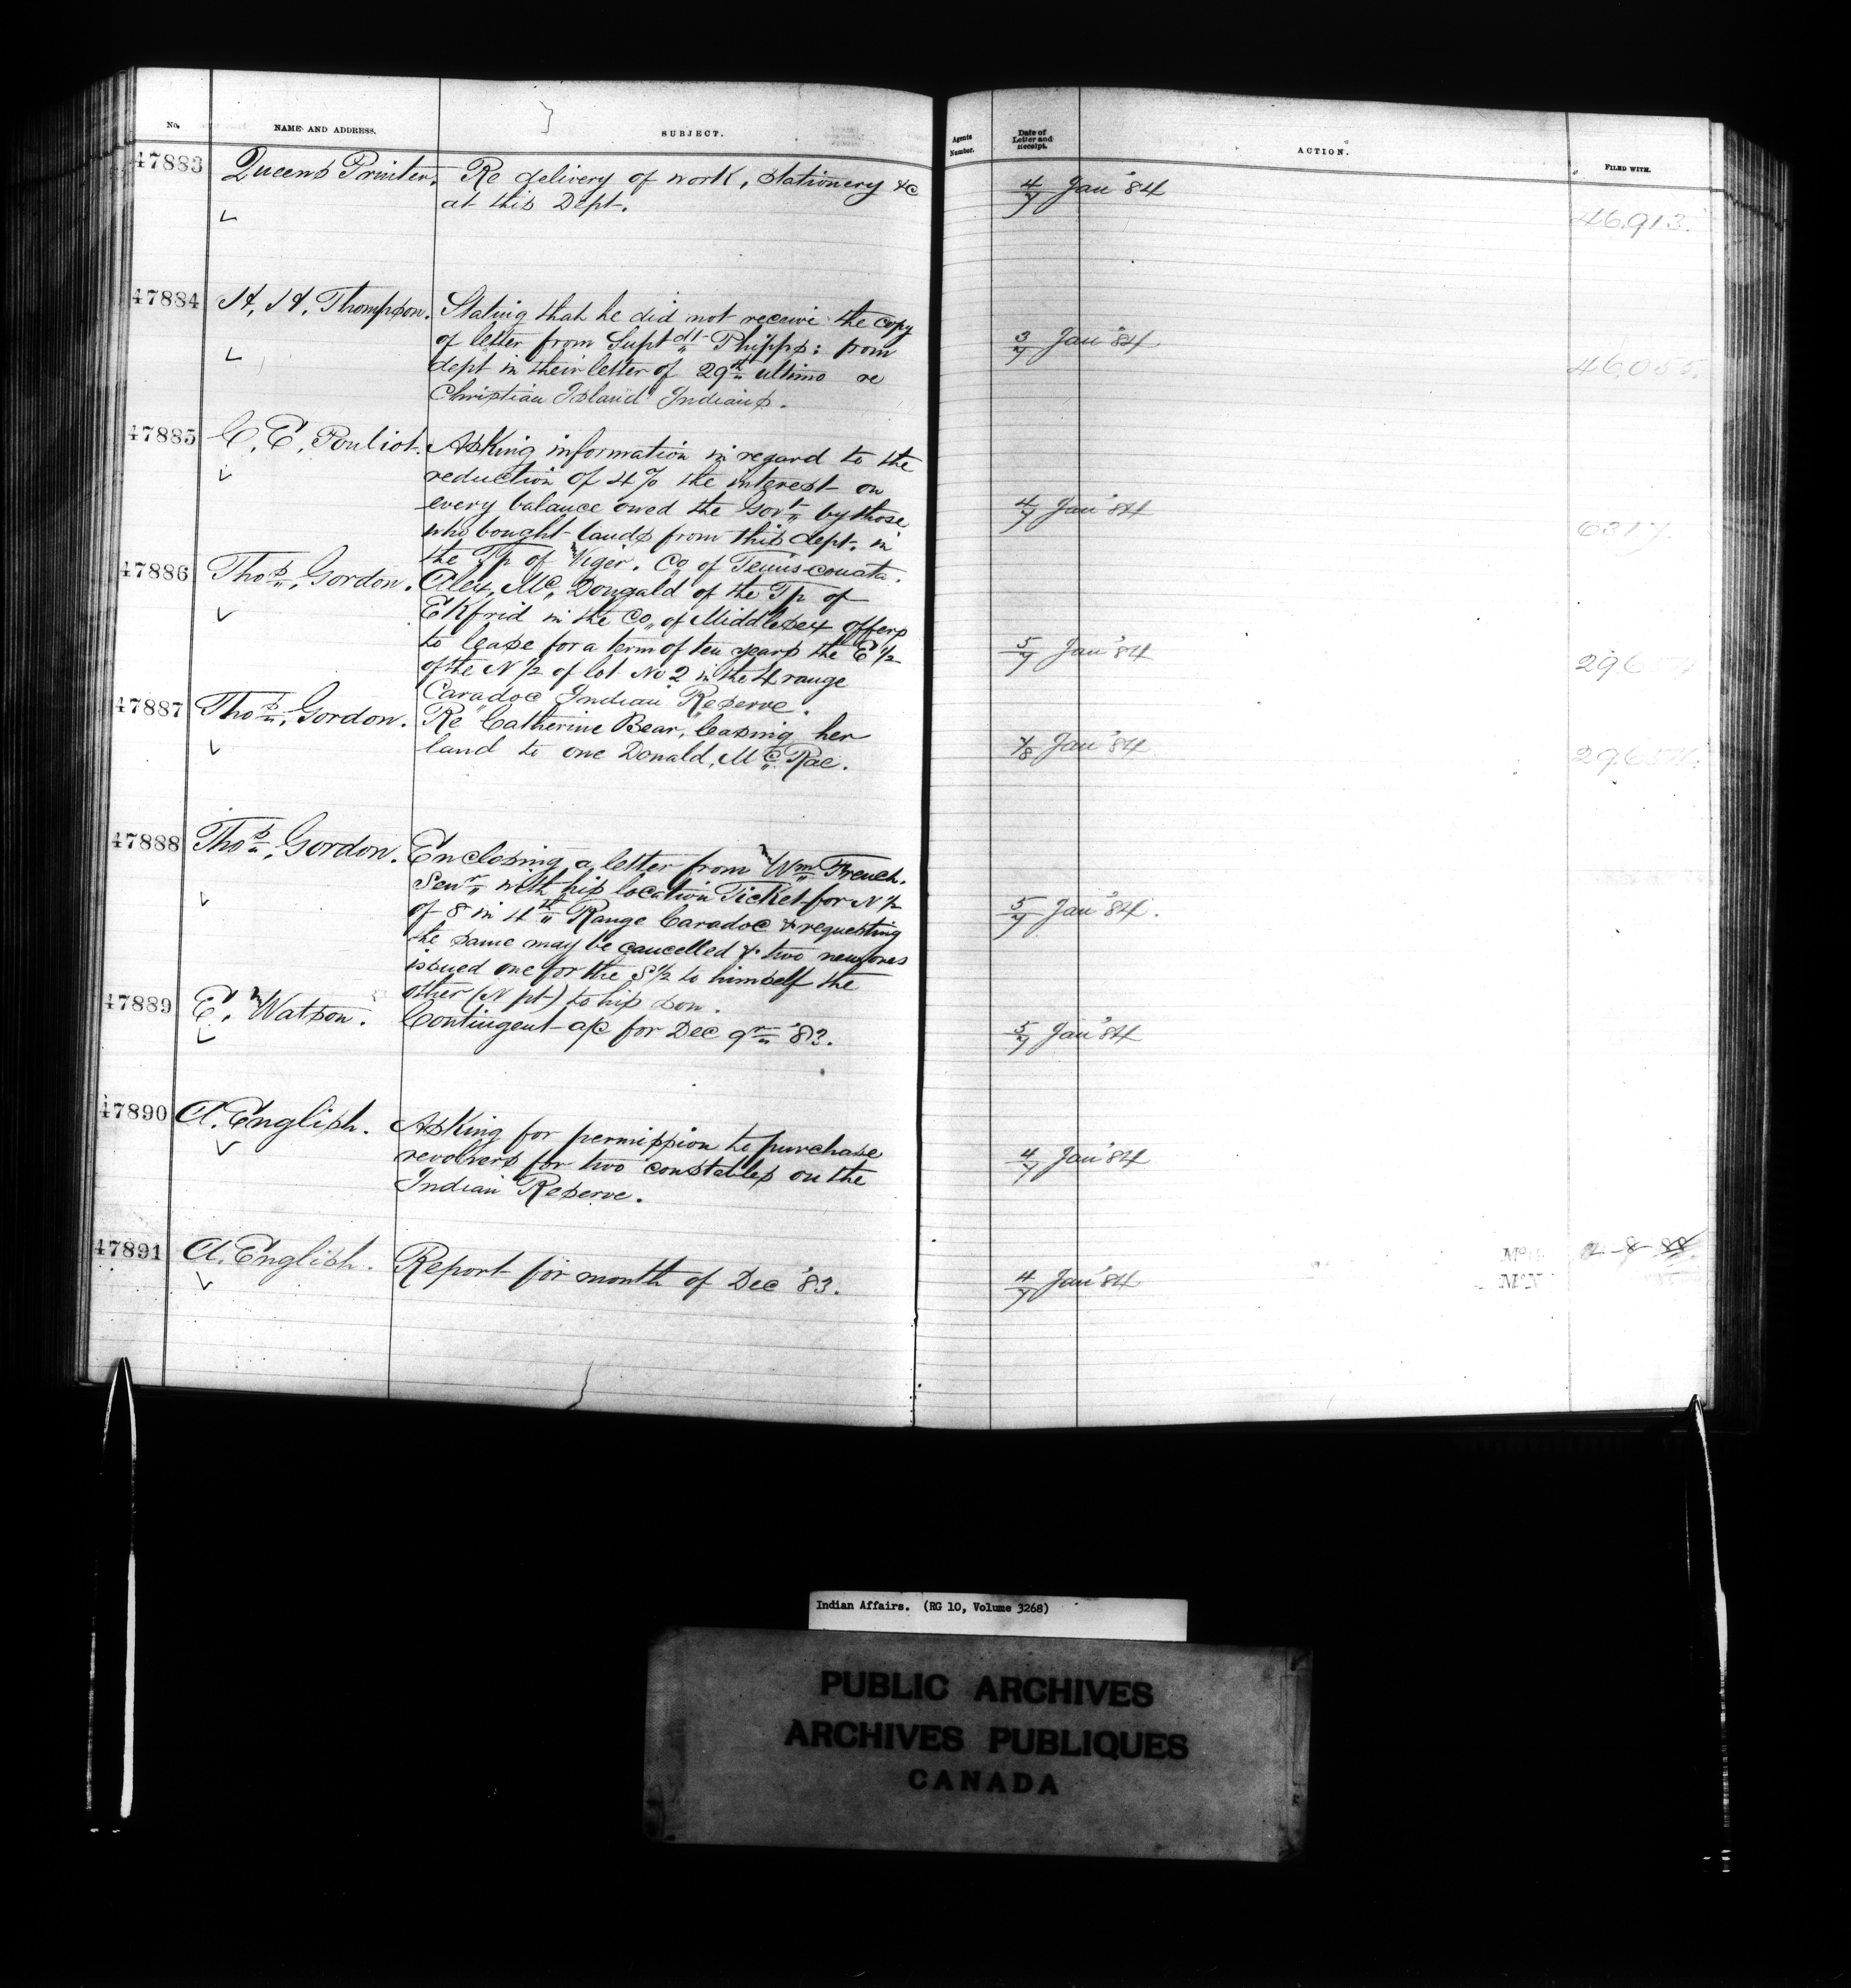 No. NAME AND ADDRESS. SUBJECT. Agents Number. Date of Letter and Receipt. ACTION. FILED WITH.
47883 Queens Printer. Re delivery of work, stationery &c 4/7 Jan '84
at this Dept. 46,913.
47884 H. H. Thompson. Stating that he did not receive the copy
of letter from Supt dt Phipps: from 3/7 Jan '84
dept in their letter of 29th ultimo re 46,055.
Christian Island Indians.
47885 C. E. Pouliot. Asking information in regard to the
reduction of 4% the interest on
every balance owed the Govt by those 4/7 Jan '84
who bought lands from this dept. in 6317.
the Tp of Viger. Co of Temisconata.
47886 Thos. Gordon. Alex. Mc. Dougald of the Tp of
Ekfrid in the Co. of Middlesex offers
to lease for a term of ten years the E 1/2 5/7 Jan '84
of the N 1/2 of lot No 2 in the 4 range
Caradoc Indian Reserve.
47887 Thos. Gordon. Re Catherine Bear, leasing her
land to one Donald, McRae. 7/8 Jan '84
47888 Thos. Gordon. Enclosing a letter from Wm French.
Senr with his location Ticket for N 1/2
of 8 in 4th Range Caradoc & requesting 5/7 Jan '84.
the same may be cancelled & two new ones
issued one for the S 1/2 to himself the
other (N pt) to his son.
47889 E. Watson. Contingent a/c for Dec qr '83. 5/7 Jan '84
47890 A. English. Asking for permission to purchase
revolvers for two constables on the 4/7 Jan '84
Indian Reserve.
47891 A. English. Report for month of Dec '83. 4/7 Jan '84
Indian Affairs. (RG 10, Volume 3268)
PUBLIC ARCHIVES
ARCHIVES PUBLIQUES
CANADA